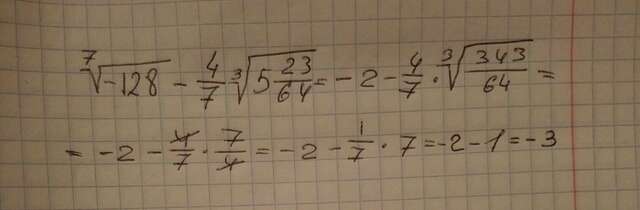 ⁷√-128 - 4/7 ³√5 23/64 = -2 - 4/7 · ³√343/64 =
= -2 - 4/7 · 7/4 = -2 - 1/7 · 7 = -2 - 1 = -3